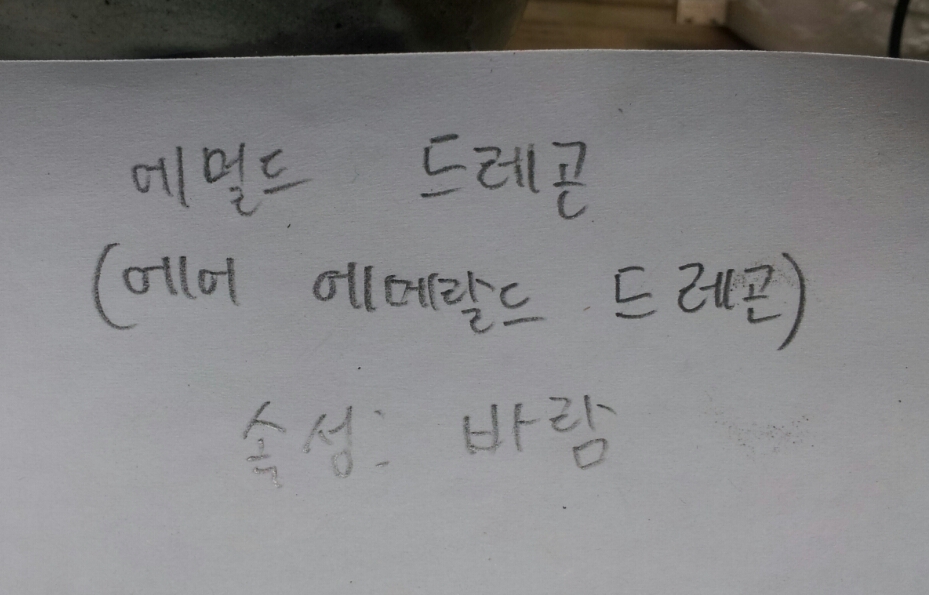 에멀드 드레곤
(에어 에메랄드 드레곤)
속성: 바람